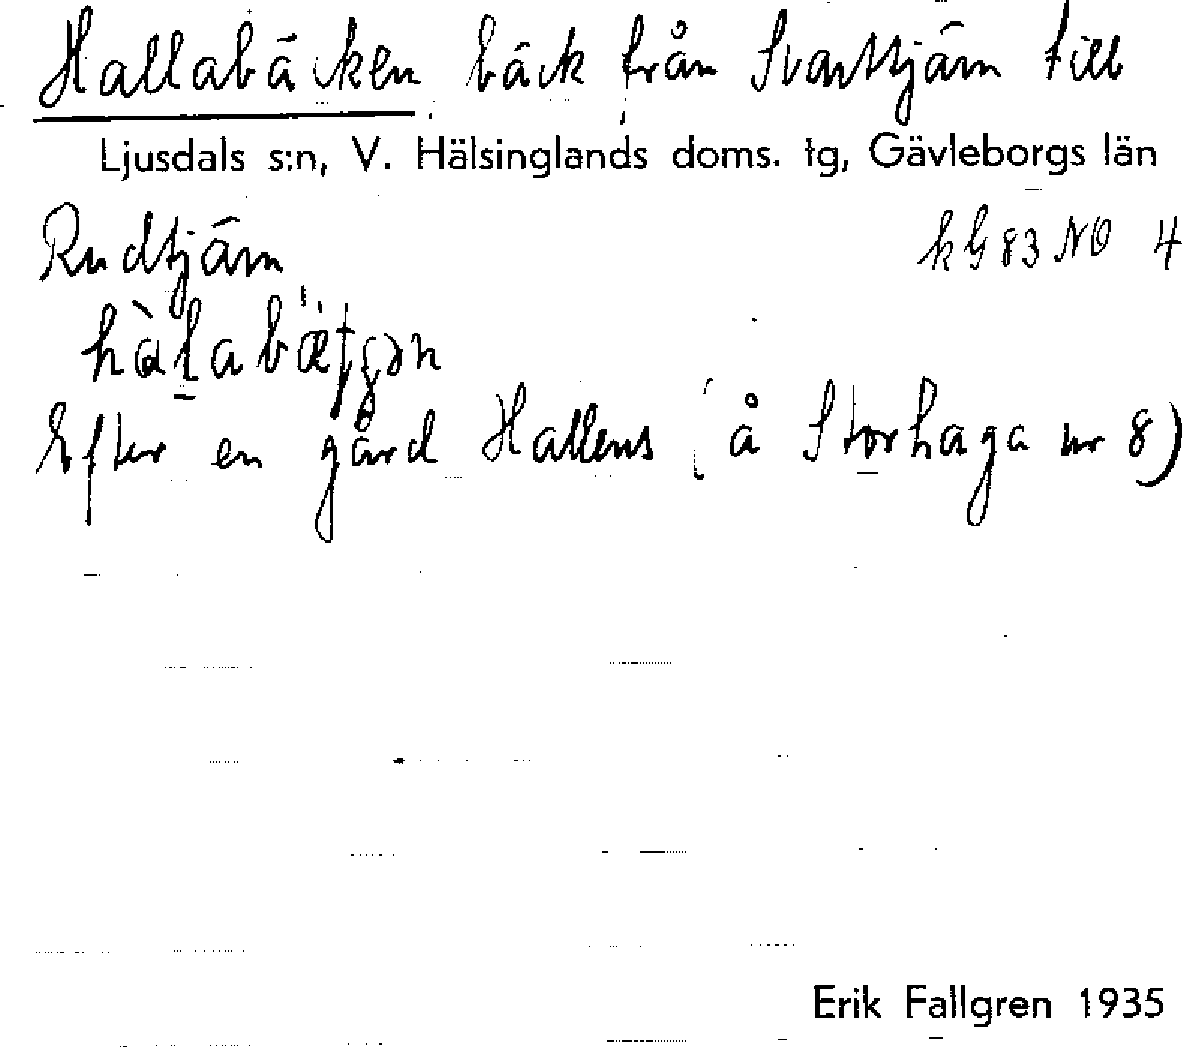 Hallabäcken bäck från Svarttjärn till
Ljusdals s:n, V. Hälsinglands doms. tg, Gävleborgs län
Rudtjärn kG83 NO 4
Efter en gård Hallens (å Storhaga nr 8)
Erik Fallgren 1935